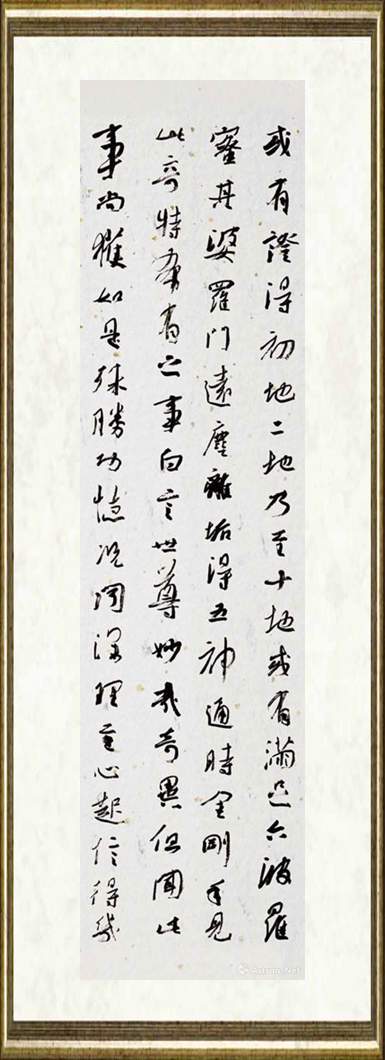 或有證得初地二地乃至十地或有滿足六波羅
蜜其婆羅門遠塵離垢得五神通時金剛手見
此奇特希有之事白言世尊妙哉奇異但聞此
事尚獲如是殊勝功德況聞深理至心起信得幾
Artron.Net